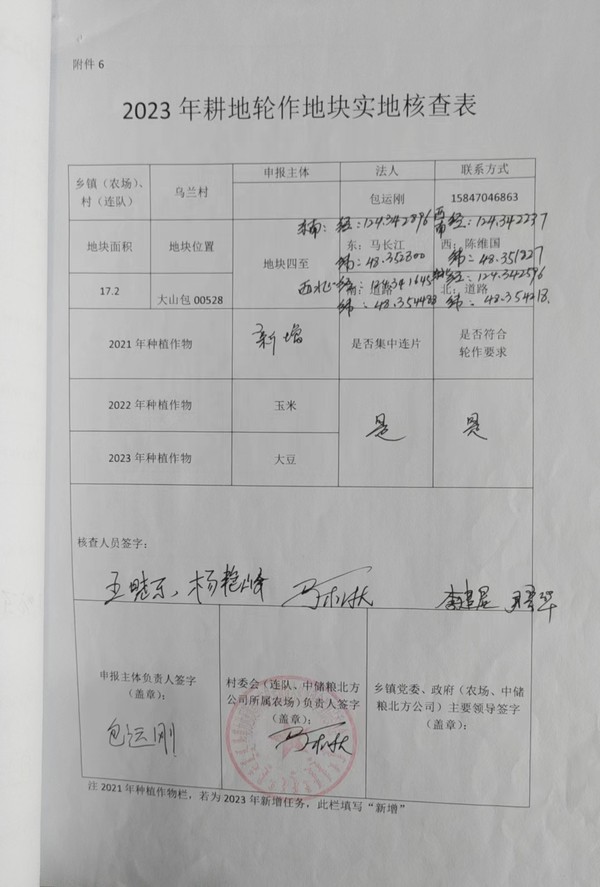 附件 6
2023 年耕地轮作地块实地核查表
乡镇（农场）、
村（连队）
乌兰村
申报主体
法人
联系方式
包运刚
15847046863
地块面积
地块位置
地块四至
东南：经：124.342896
西南经：124.342237
东：马长江
西：陈维国
纬：48.352300
纬：48.351827
17.2
大山包 00528
西北
南：道路
北：道路
经：124.342596
纬：48.354488
纬：48.354218.
2021 年种植作物
新增
是否集中连片
是否符合
轮作要求
2022 年种植作物
玉米
是
是
2023 年种植作物
大豆
核查人员签字：
杨艳峰
申报主体负责人签字
（盖章）：
包运刚
村委会（连队、中储粮北方
公司所属农场）负责人签字
（盖章）：
乡镇党委、政府（农场、中储
粮北方公司）主要领导签字
（盖章）：
注 2021年种植作物栏，若为 2023 年新增任务，此栏填写“新增”